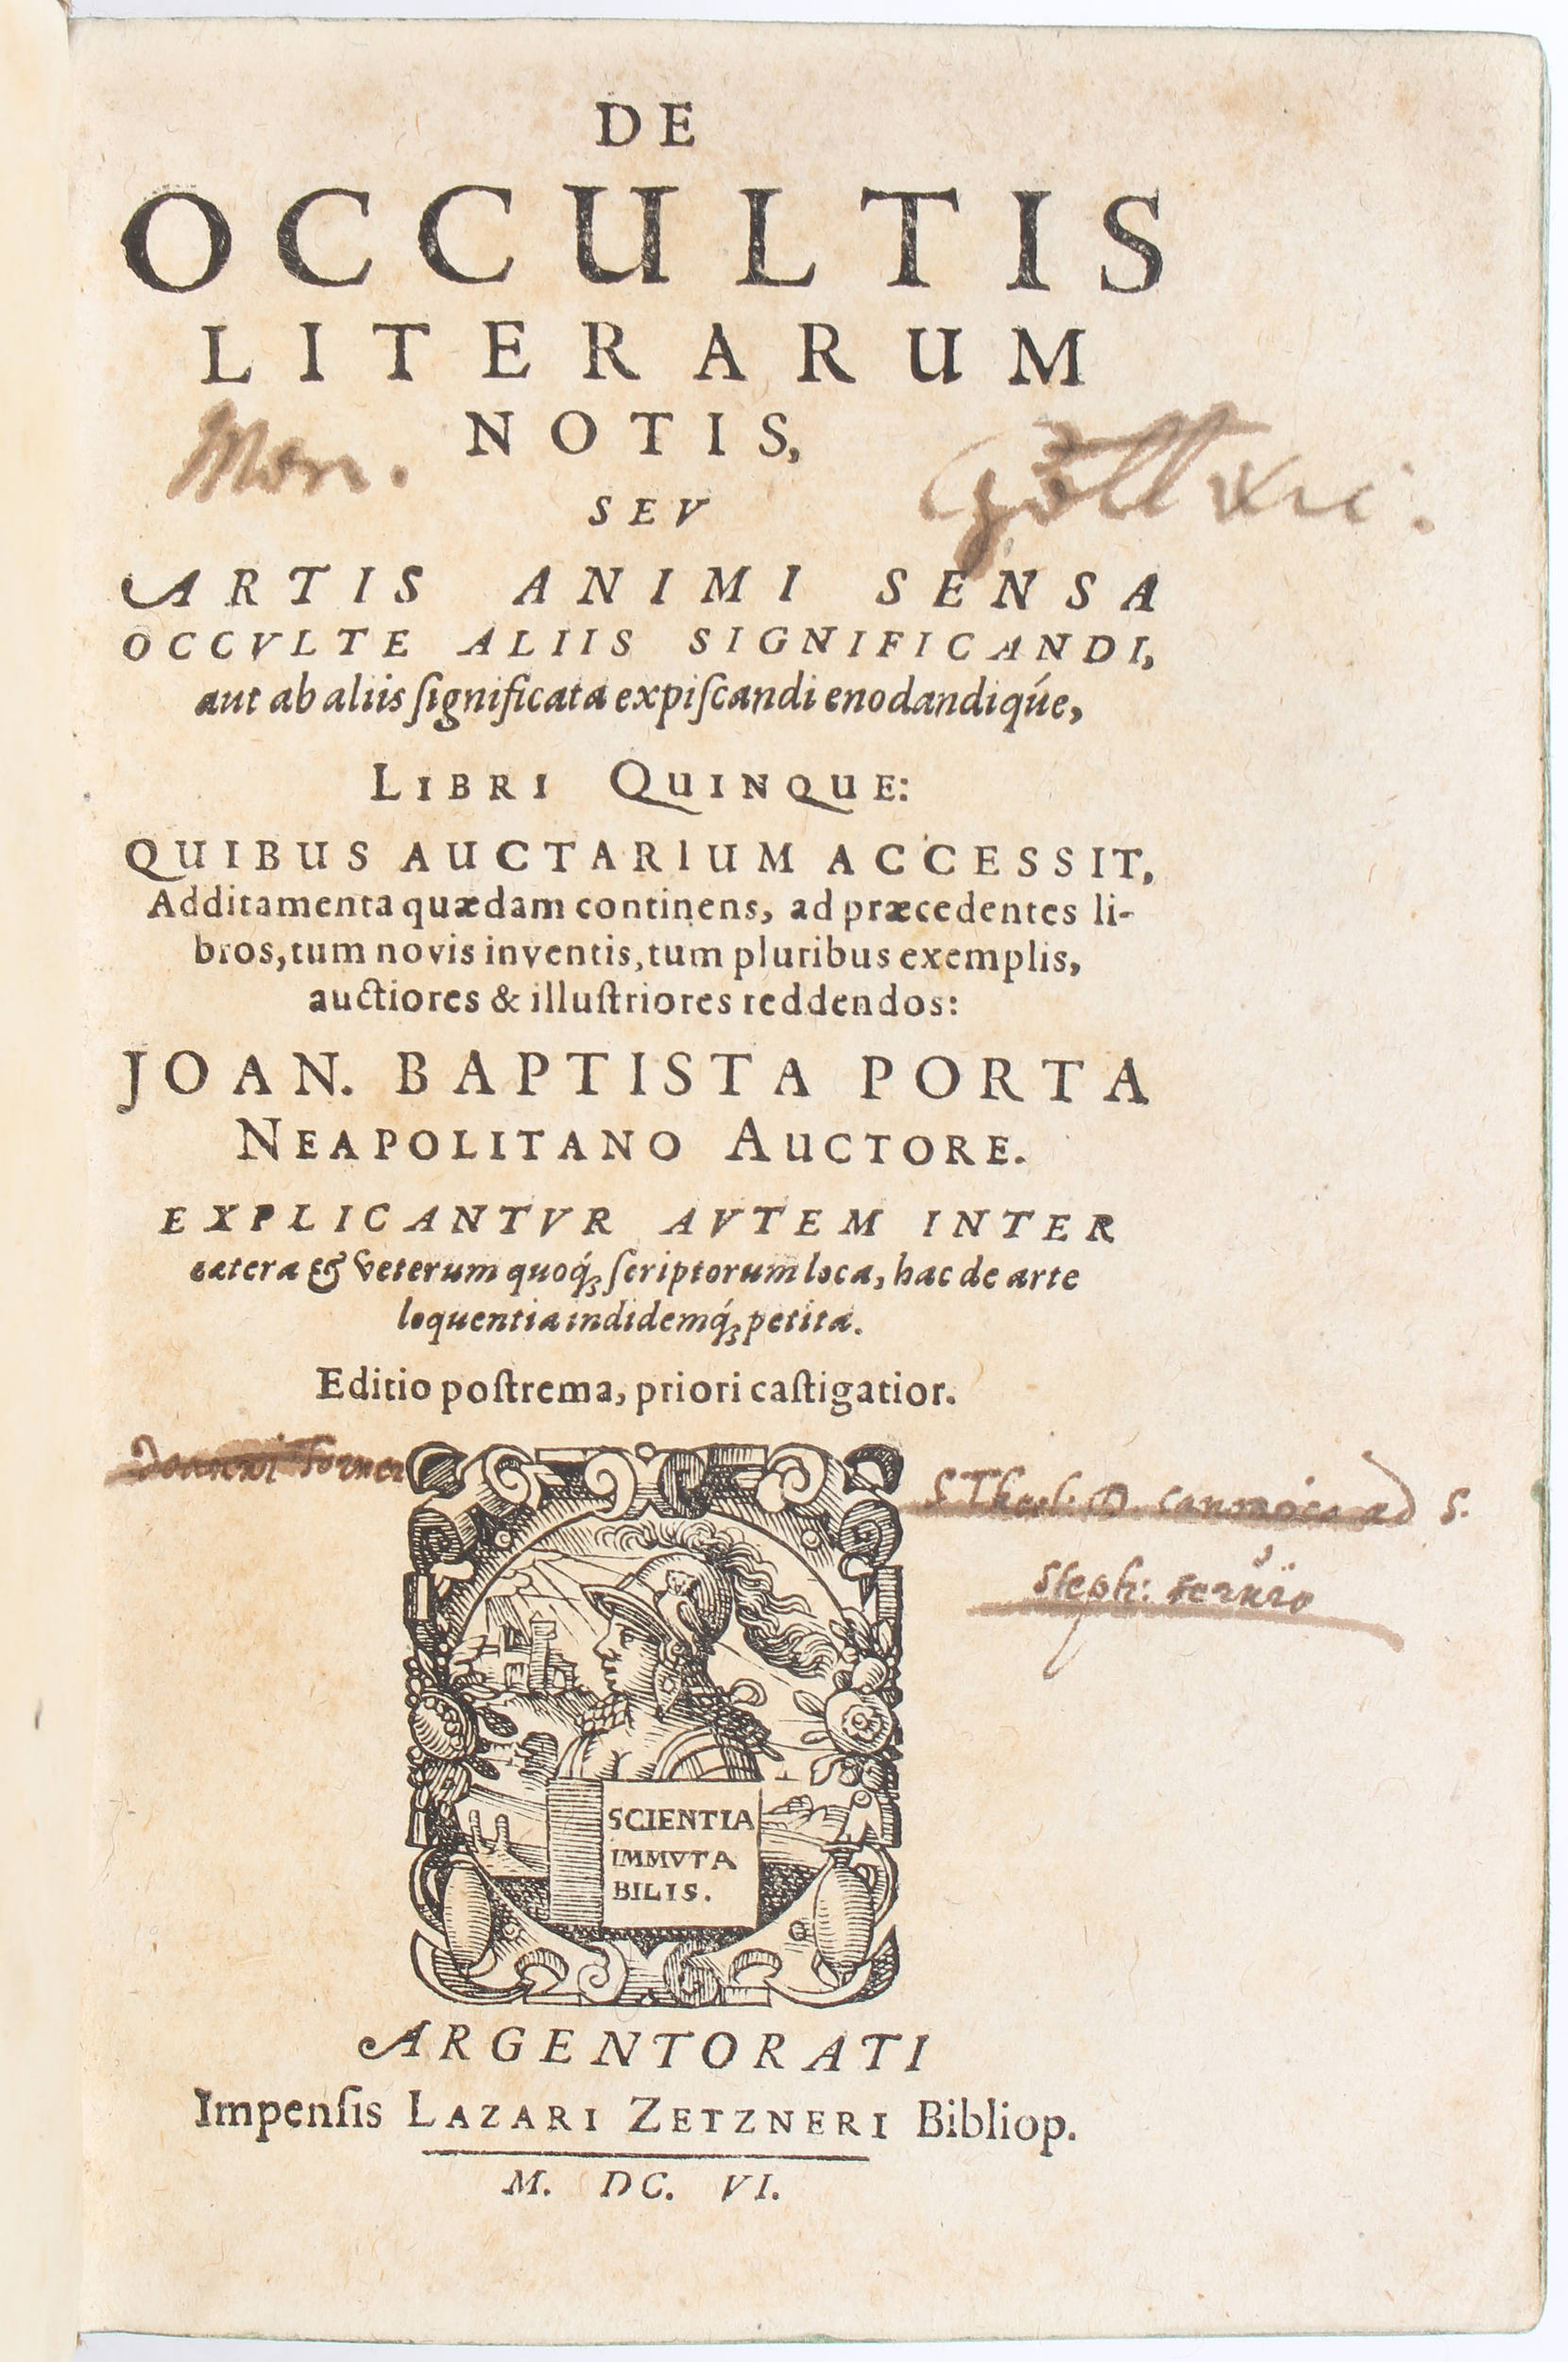 DE
OCCULTIS
LITERARUM
NOTIS,
Mon. Göttwic.
SEV
ARTIS ANIMI SENSA
OCCVLTE ALIIS SIGNIFICANDI,
aut ab aliis ſignificata expiſcandi enodandiqúe,
LIBRI QUINQUE:
QUIBUS AUCTARIUM ACCESSIT,
Additamenta quædam continens, ad præcedentes li-
bros, tum novis inventis, tum pluribus exemplis,
auctiores & illuſtriores reddendos:
JOAN. BAPTISTA PORTA
NEAPOLITANO AUCTORE.
EXPLICANTVR AVTEM INTER
cætera & veterum quoq́; ſcriptorum loca, hac de arte
loquentia indidemq́; petita.
Editio poſtrema, priori caſtigatior.
S Theol: D. canonico ad S.
Steph:
SCIENTIA
IMMVTA
BILIS.
ARGENTORATI
Impenſis LAZARI ZETZNERI Bibliop.
M. DC. VI.